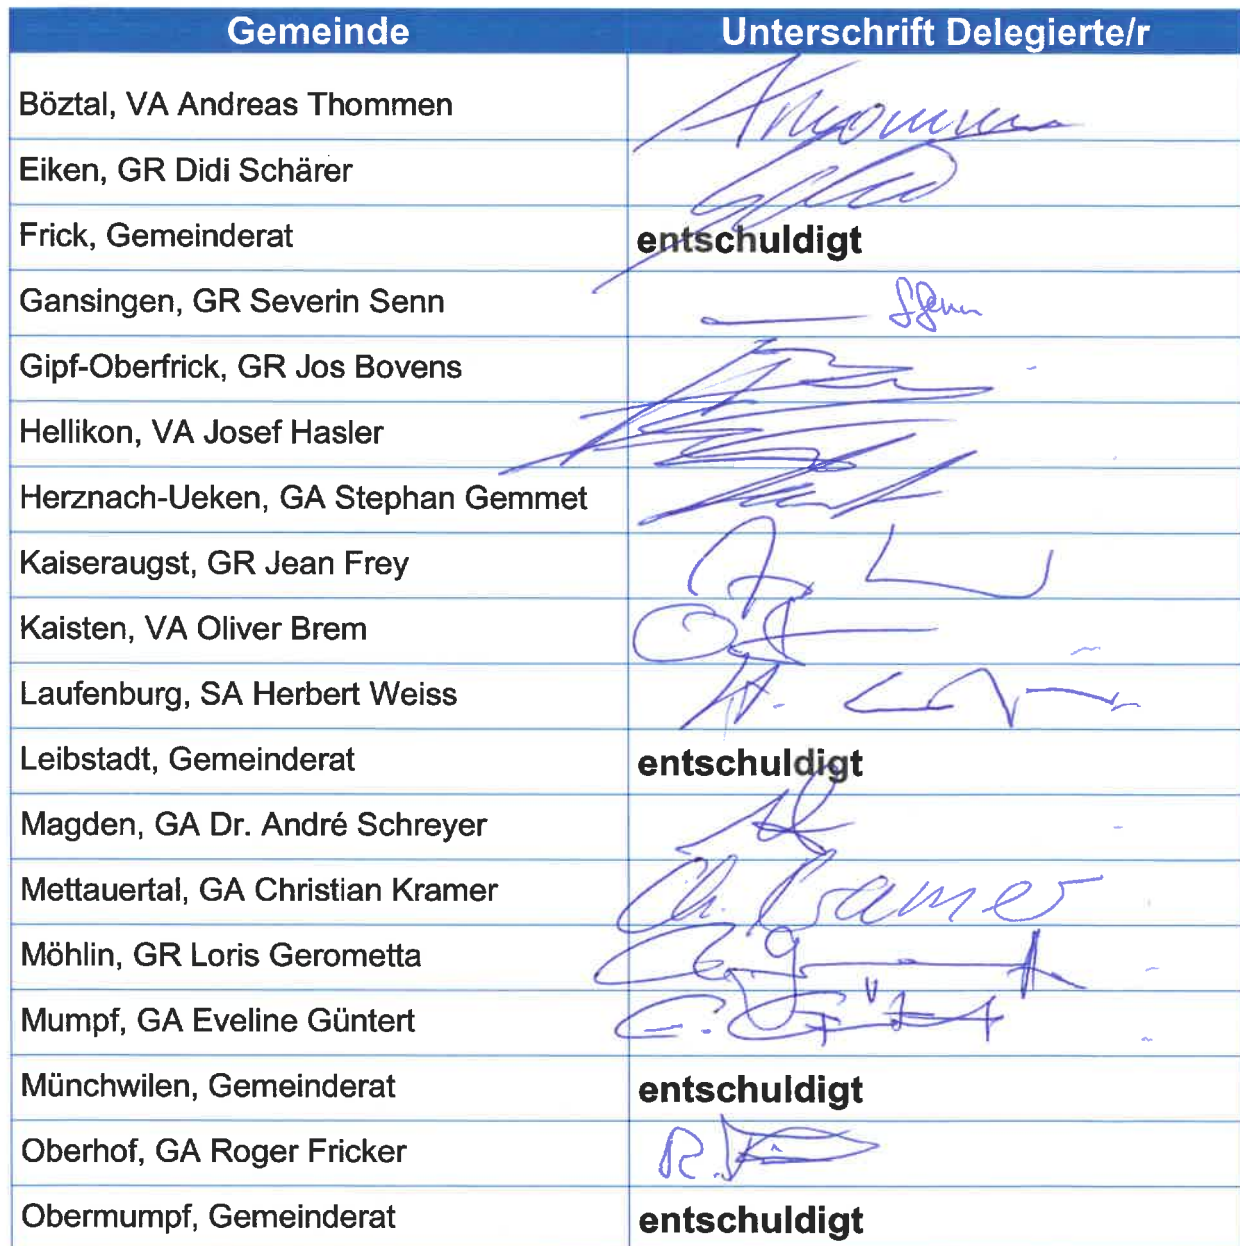 Gemeinde Unterschrift Delegierte/r
Böztal, VA Andreas Thommen
Eiken, GR Didi Schärer
Frick, Gemeinderat entschuldigt
Gansingen, GR Severin Senn
Gipf-Oberfrick, GR Jos Bovens
Hellikon, VA Josef Hasler
Herznach-Ueken, GA Stephan Gemmet
Kaiseraugst, GR Jean Frey
Kaisten, VA Oliver Brem
Laufenburg, SA Herbert Weiss
Leibstadt, Gemeinderat entschuldigt
Magden, GA Dr. André Schreyer
Mettauertal, GA Christian Kramer Ch. Kramer
Möhlin, GR Loris Gerometta
Mumpf, GA Eveline Güntert
Münchwilen, Gemeinderat entschuldigt
Oberhof, GA Roger Fricker
Obermumpf, Gemeinderat entschuldigt